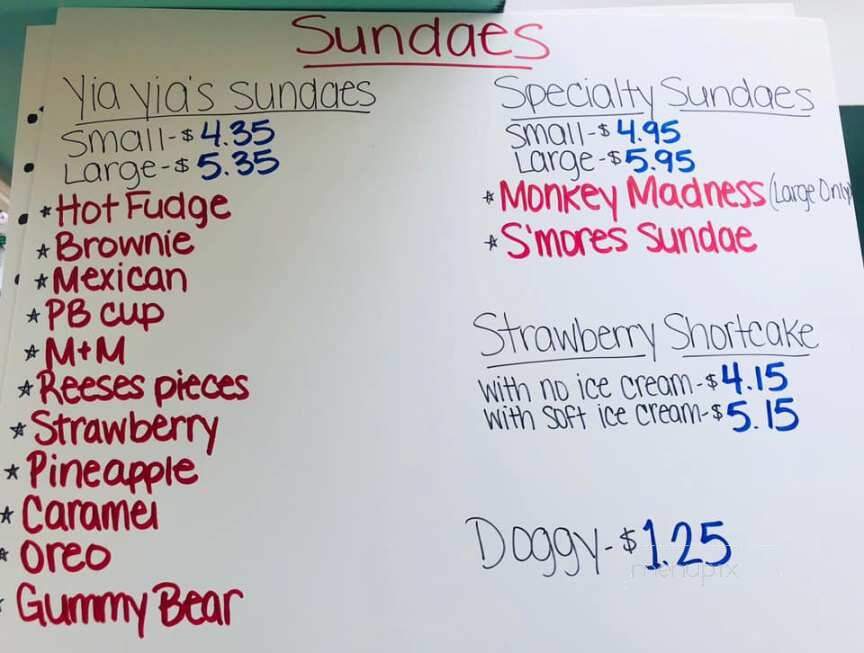 Sundaes
Yia Yia's Sundaes
Small-$4.35
Large-$5.35
*Hot Fudge
*Brownie
*Mexican
*PB cup
*M+M
*Reeses pieces
*Strawberry
*Pineapple
*Caramel
*Oreo
*Gummy Bear
Specialty Sundaes
Small-$4.95
Large-$5.95
*Monkey Madness (Large Only)
*S'mores Sundae
Strawberry Shortcake
with no ice cream-$4.15
with soft ice cream-$5.15
Doggy-$1.25
menupix